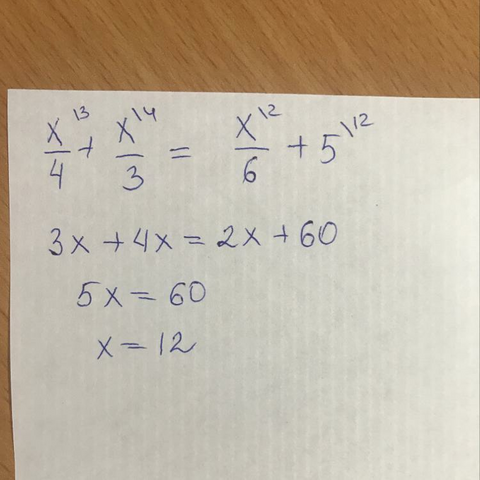 x/4 \3 + x/3 \4 = x/6 \2 + 5 \12
3x + 4x = 2x + 60
5x = 60
x = 12